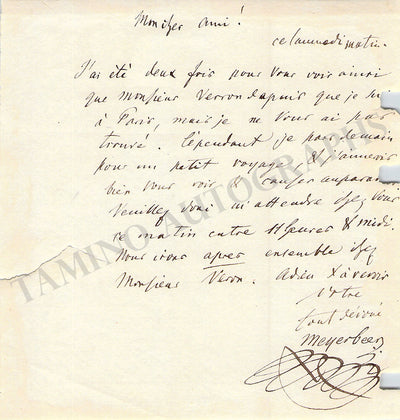 Mon cher ami!
ce samedi matin.
J'ai été deux fois pour Vous voir ainsi
que Monsieur Verron depuis que je suis
à Paris, mais je ne Vous ai pas
trouvé. Cépendant je pars demain
pour un petit voyage, & j'aimerois
bien Vous voir & causer auparavant.
Veuillez donc m'attendre chez Vous
ce matin entre 11 heures & midi.
Nous irons après ensemble chez
Monsieur Veron. Adieu & à revoir
Votre
tout dévoué
Meyerbeer
TAMINO AUTOGRAPHS